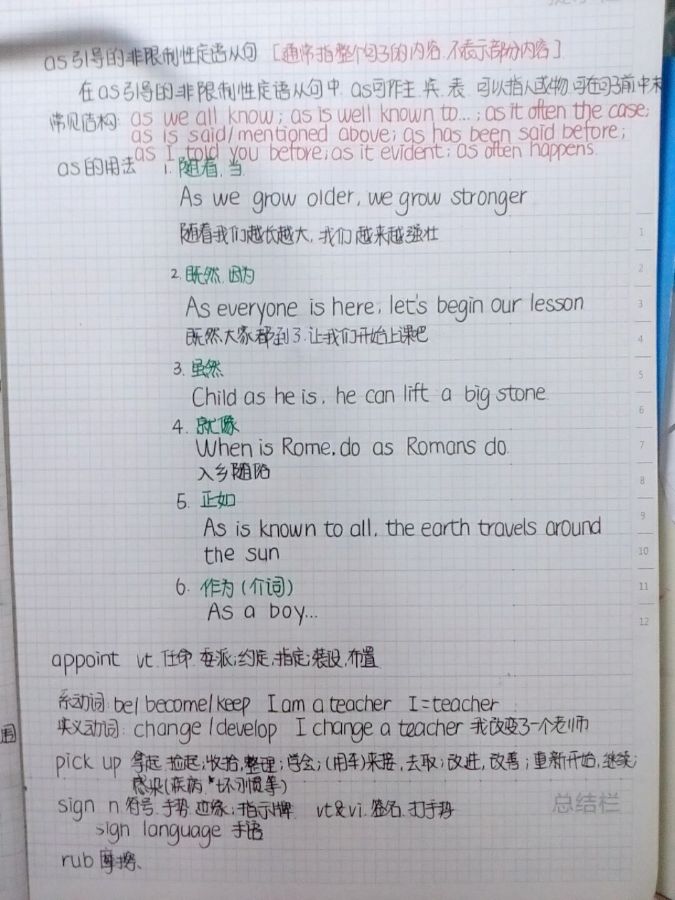 as引导的非限制性定语从句 [通常指整个句子的内容,不表示部分内容]
在as引导的非限制性定语从句中,as可作主、宾、表,可以指人或物,可在句子前中末
常见结构: as we all know; as is well known to...; as it often the case;
as is said/mentioned above; as has been said before;
as I told you before; as it evident; as often happens.
as的用法 1. 随着,当
As we grow older, we grow stronger
随着我们越长越大,我们越来越强壮
2. 既然,因为
As everyone is here, let's begin our lesson
既然大家都到了,让我们开始上课吧
3. 虽然
Child as he is, he can lift a big stone.
4. 就像
When is Rome, do as Romans do.
入乡随俗
5. 正如
As is known to all, the earth travels around
the sun
6. 作为(介词)
As a boy...
appoint vt.任命.委派;约定,指定;装设,布置
系动词: be/become/keep I am a teacher I=teacher
实义动词: change/develop I change a teacher 我改变了一个老师
pick up 拿起,捡起;收拾,整理;学会;(用车)来接,去取;改进,改善;重新开始,继续;
感染(疾病,坏习惯等)
sign n.符号.手势.边缘;指示牌 vt&vi.签名.打手势
sign language 手语
rub 摩擦、
总结栏
1
2
3
4
5
6
7
8
9
10
11
12